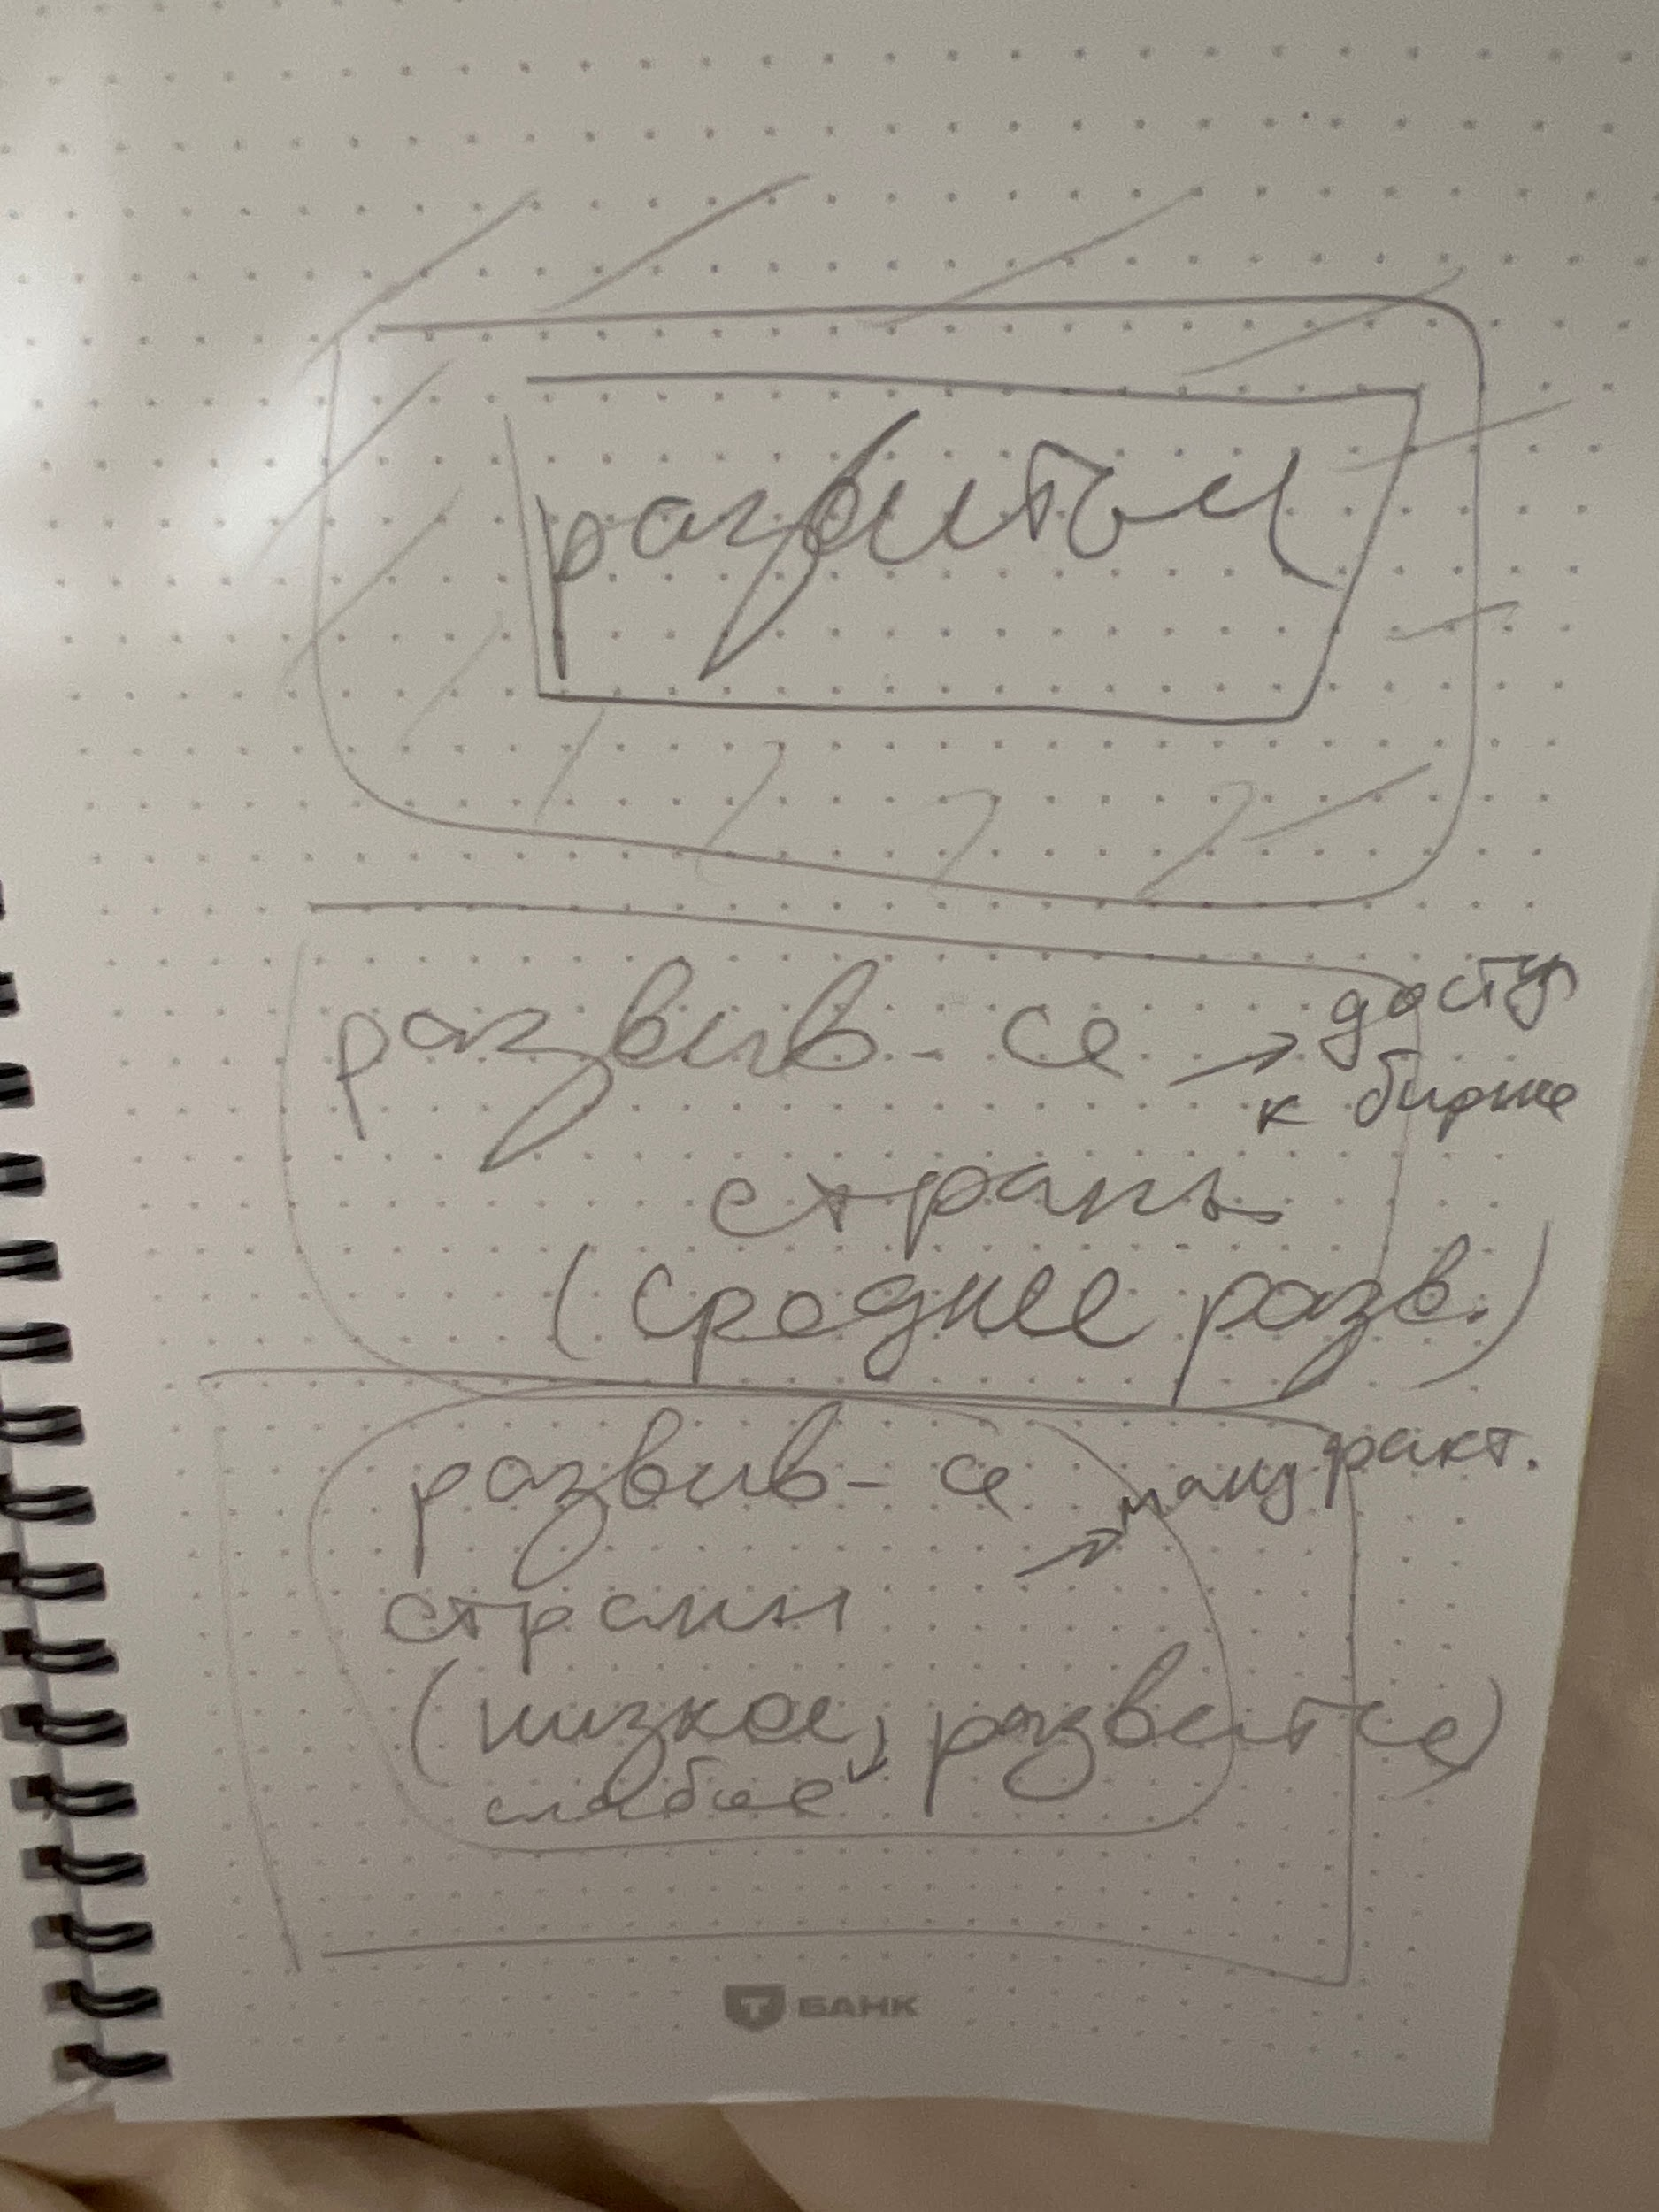 развитые
развив-се → досту
к бирже
страны
(среднее разв.)
развив-се → мануфакт.
страны
(низкое, развитие)
слабое
Т БАНК